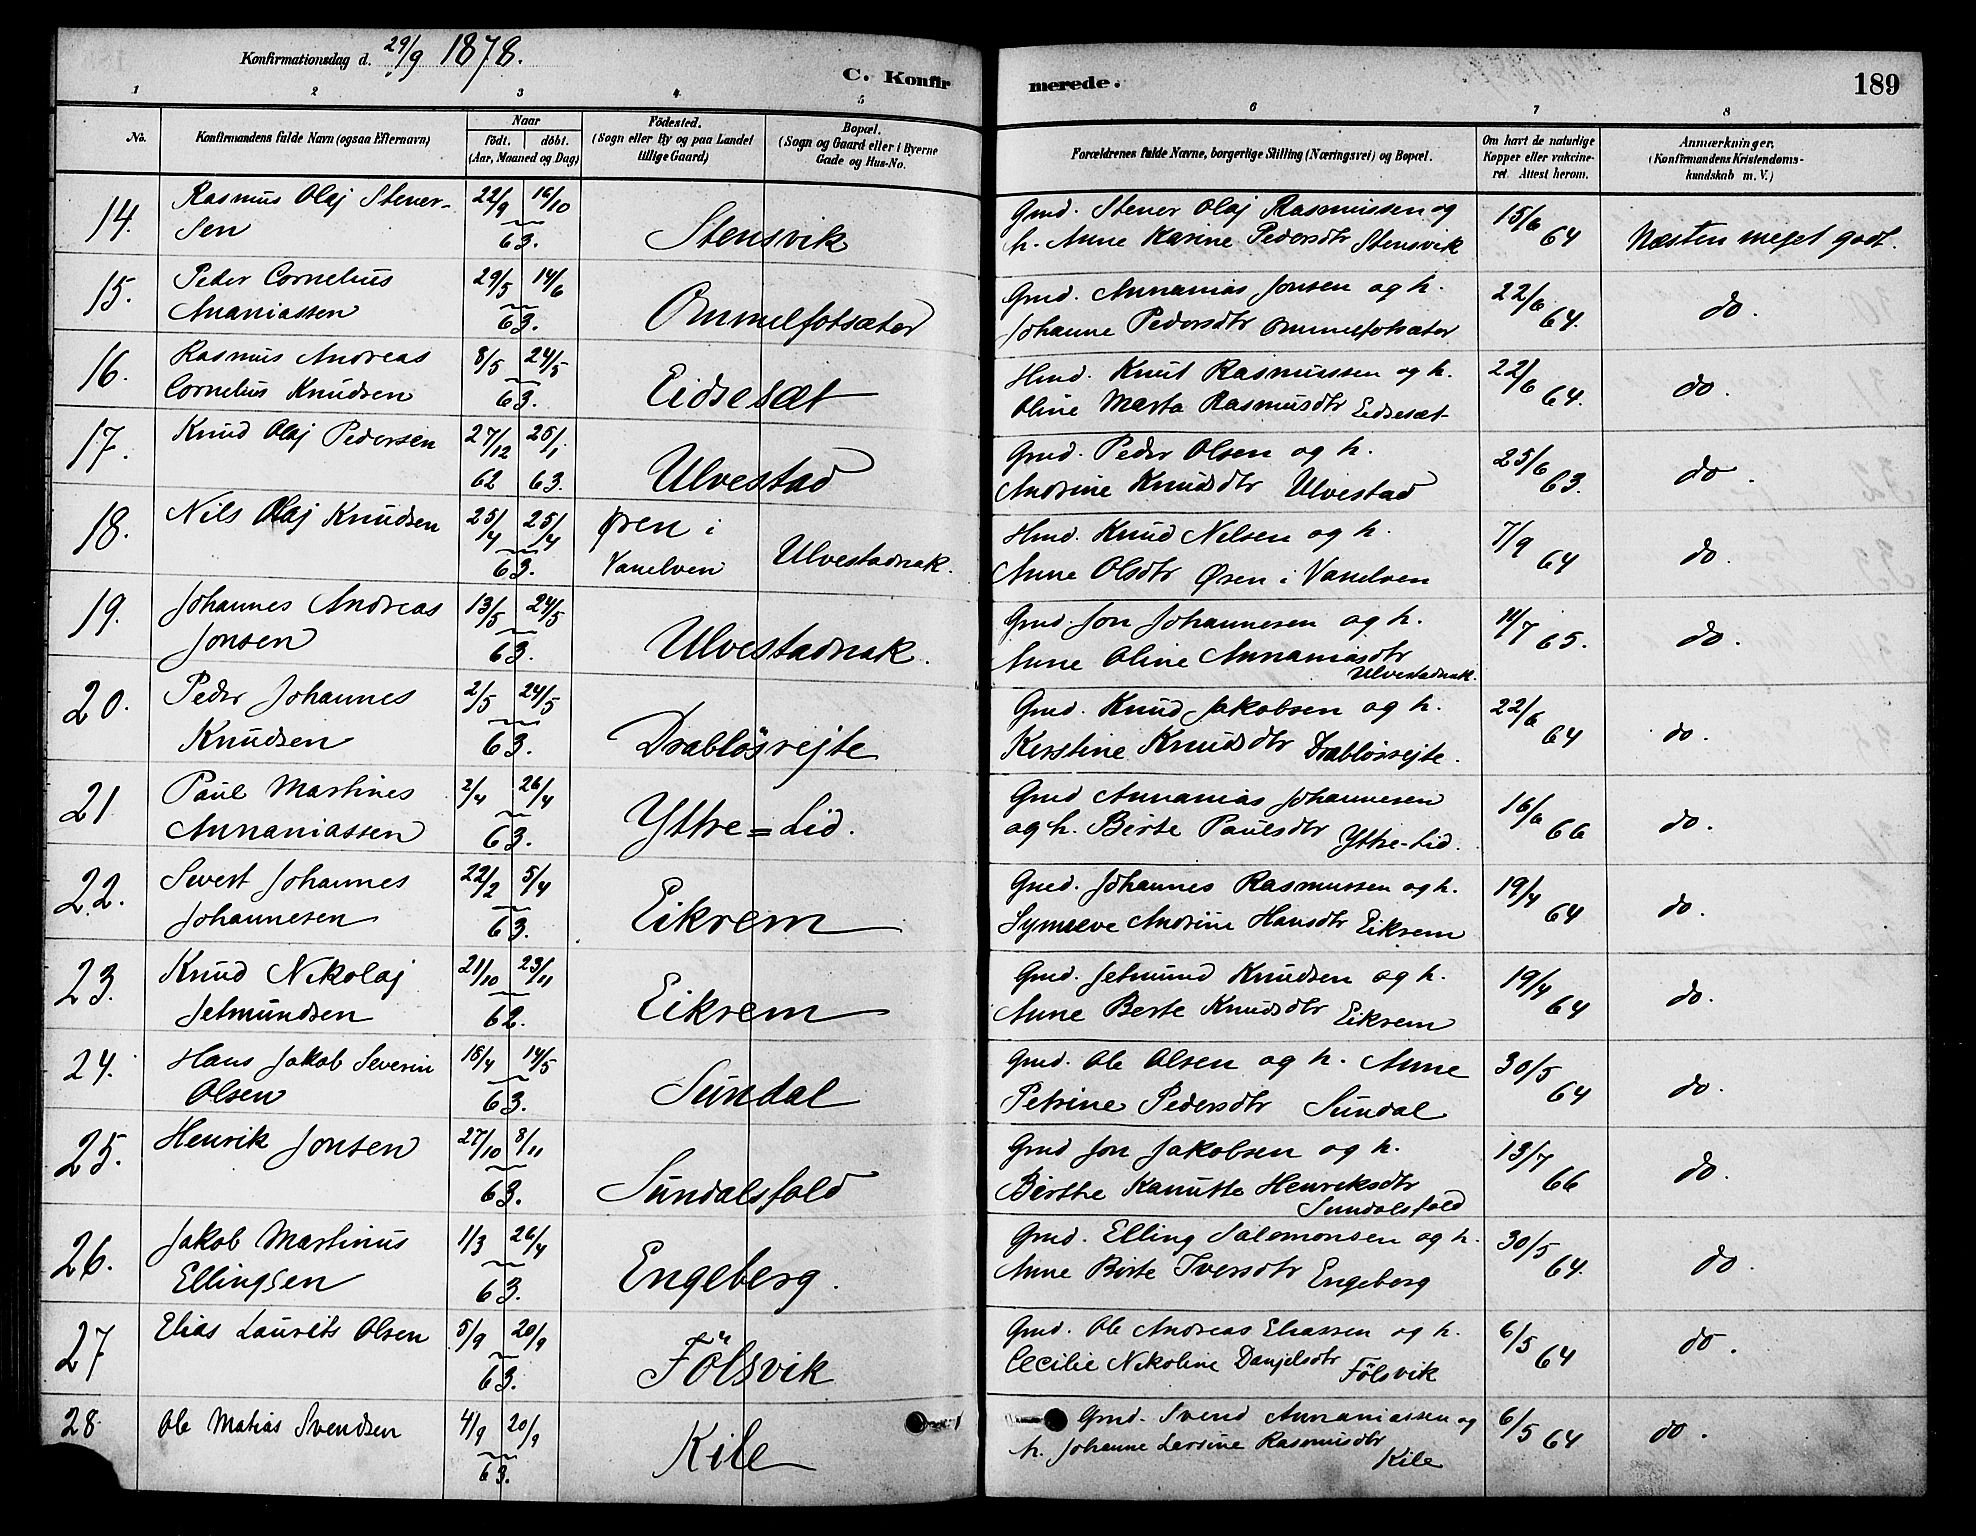 Konfirmationsdag d. 29/9 1878.
C. Konfirmerede.
189
1 2 3 4 5 6 7 8
No.
Konfirmandens fulde Navn (ogsaa Efternavn)
Naar
födt. döbt.
(Aar, Maaned og Dag)
Födested.
(Sogn eller By og paa Landet
tillige Gaard)
Bopæl.
(Sogn og Gaard eller i Byerne
Gade og Hus-No.
Forældrenes fulde Navne, borgerlige Stilling (Næringsvei) og Bopæl.
Om havt de naturlige
Kopper eller vakcine-
ret. Attest herom.
Anmærkninger.
(Konfirmandens Kristendoms-
kundskab m. V.)
14. Rasmus Olaj Stener- 22/9 16/10 Stensvik Gmd. Stener Olaj Rasmussen og 15/6 64 Næsten meget godt.
sen 63. h. Anne Karine Pedersdtr Stensvik
15. Peder Cornelius 29/5 14/6 Ommelfotsæter Gmd. Annanias Jonsen og h. 22/6 64. do.
Ananiassen 63. Johanne Pedersdtr Ommelfotsæter
16. Rasmus Andreas 8/5 24/5 Eidsesæt Hmd. Knut Rasmussen og h. 22/6 64. do.
Cornelius Knudsen 63. Oline Marta Rasmusdtr Eidsesæt
17. Knud Olaj Pedersen 27/12 25/1 Ulvestad Gmd. Peder Olsen og h. 25/6 63. do.
62 63. Andrine Knudsdtr Ulvestad
18. Nils Olaj Knudsen 25/4 25/4 Øren i Ulvestadnak. Hmd. Knud Nelsen og h. 7/9 64 do.
63. Vanelven Anne Olsdtr Øren i Vanelven
19. Johannes Andreas 13/5 24/5 Ulvestadnak. Gmd. Jon Johannesen og h. 11/7 65. do.
Jonsen 63. Anne Oline Annaniasdtr
Ulvestadnak.
20. Peder Johannes 2/5 24/5 Drablösrejte Gmd. Knud Jakobsen og h. 22/6 64 do.
Knudsen 63. Kerstine Knudsdtr Drablösrejte.
21 Paul Martines 2/4 26/4 Yttre=Lid. Gmd Annanias Johannesen 16/6 66 do.
Annaniassen 63. og h. Berte Paulsdtr Yttre-Lid.
22. Severt Johannes 22/2 5/4 Eikrem Gmd. Johannes Rasmussen og h. 19/4 64 do.
Johannesen 63. Synneve Andrine Hansdtr Eikrem
23. Knud Nikolaj 21/10 23/11 Eikrem Gmd. Jetmund Knudsen og h. 19/4 64 do.
Jetmundsen 62. Anne Berte Knudsdtr Eikrem
24. Hans Jakob Severin 18/4 14/5 Sundal Gmd. Ole Olsen og h. Anne 30/5 64 do.
Olsen 63. Petrine Pedersdtr Sundal
25. Henrik Jonsen 27/10 8/11 Sundalsfold Gmd Jon Jakobsen og h. 13/7 66 do.
63. Birthe Kanutte Henriksdtr
Sundalsfold
26. Jakob Martinus 1/3 26/4 Engeberg. Gmd. Elling Salomonsen og h. 30/5 64. do.
Ellingsen 63. Anne Berte Iversdtr Engeberg
27 Elias Laurits Olsen 5/9 20/9 Fölsvik Gmd. Ole Andreas Eliassen og h. 6/5 64 do.
63. Cecilie Nikoline Danjelsdtr Fölsvik
28 Ole Matias Svendsen 4/9 20/9 Kile Gmd. Svend Annaniassen og 6/5 64 do.
63. h. Johanne Larsine Rasmusdtr
Kile